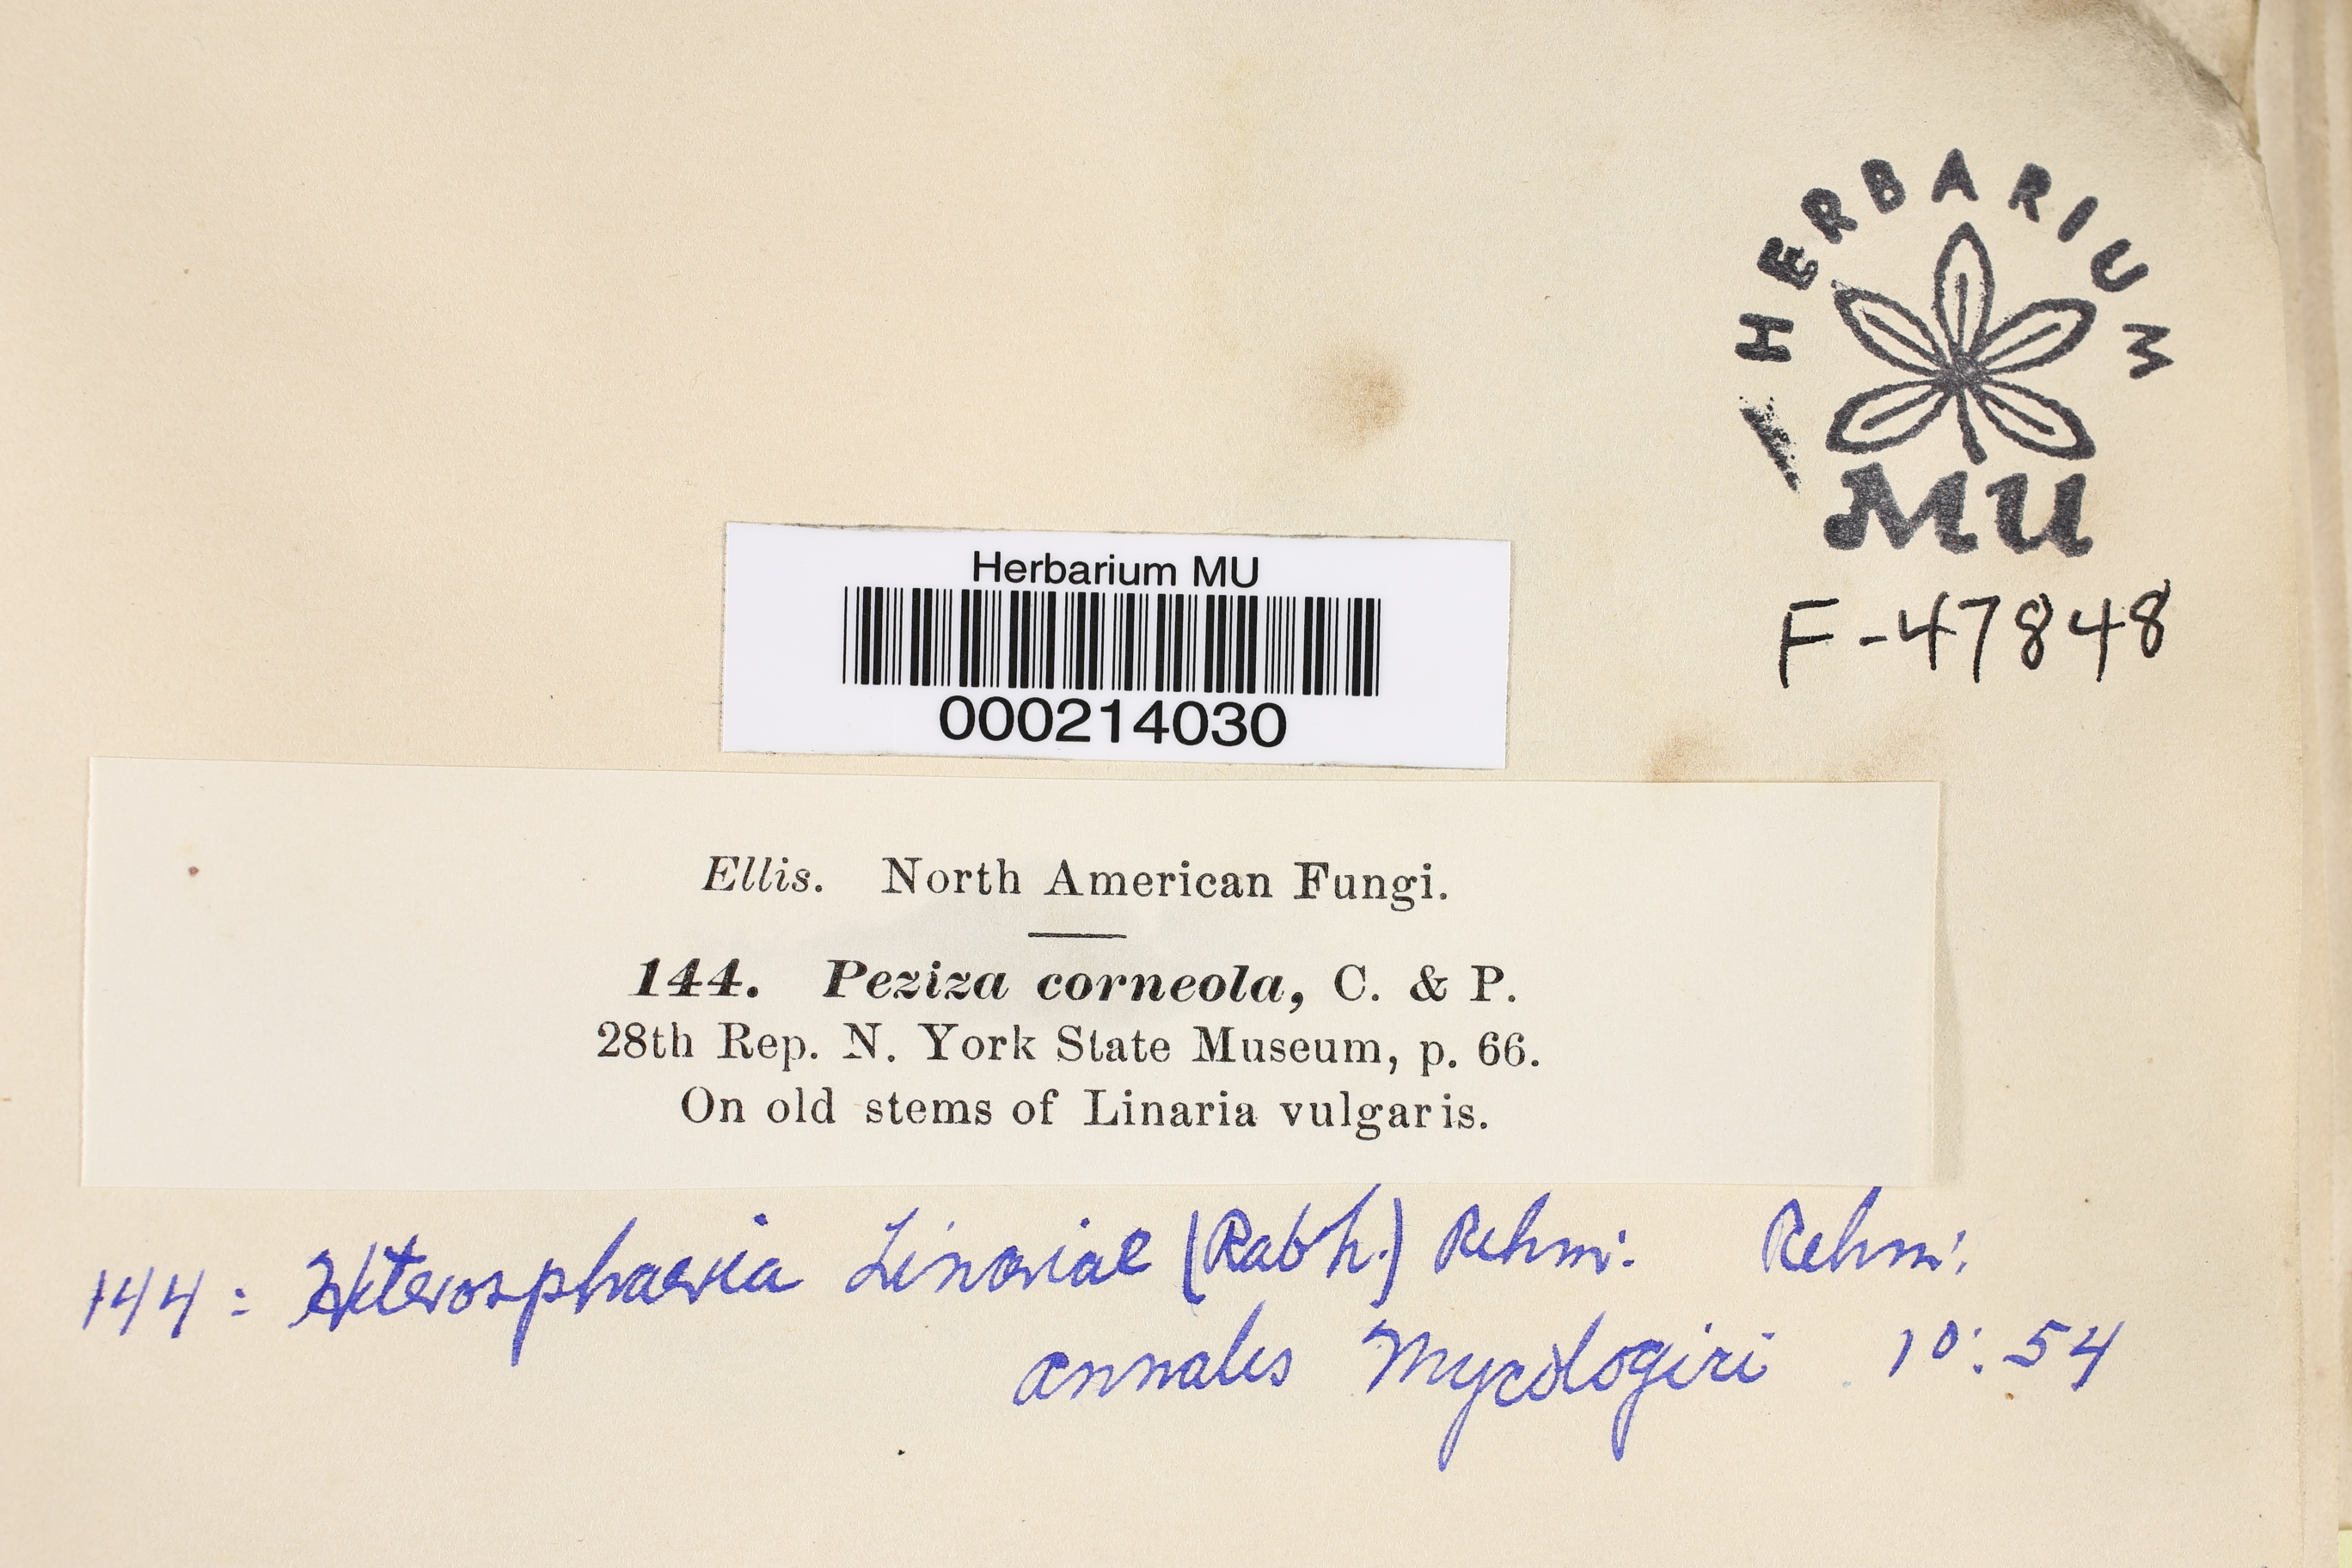 HERBARIUM
MU
F-47848
Herbarium MU
000214030
Ellis. North American Fungi.
144. Peziza corneola, C. & P.
28th Rep. N. York State Museum, p. 66.
On old stems of Linaria vulgaris.
144 = Heterosphaeria Linariae (Rabh.) Rehm. Rehm:
Annales Mycologici 10: 54